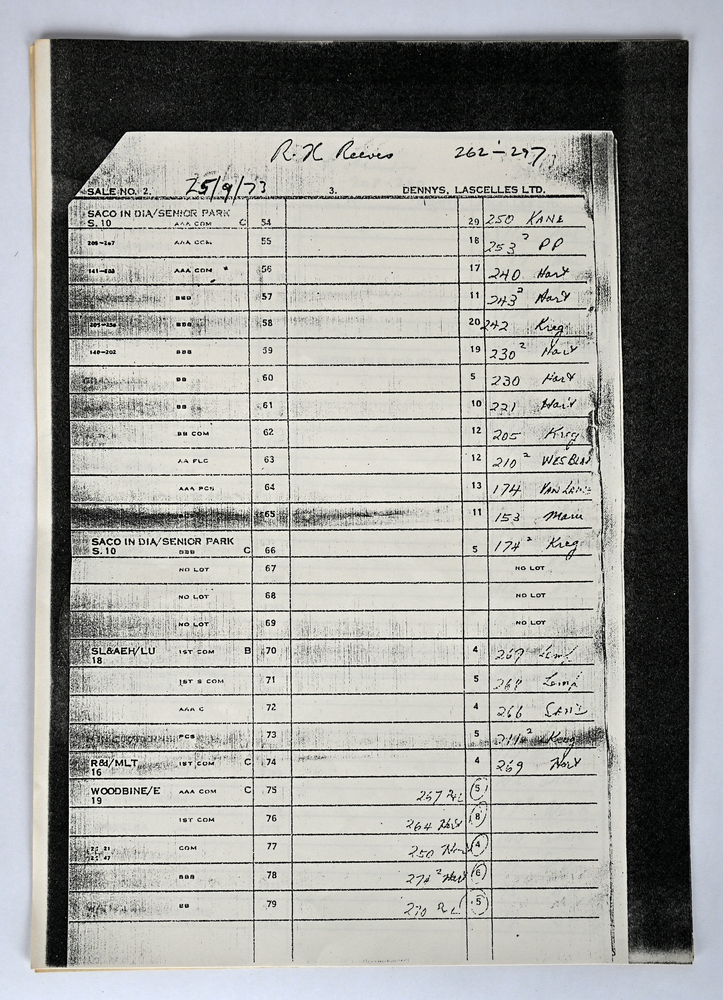 R. H Reeves 262-297
SALE NO. 2. 25/9/73 3. DENNYS, LASCELLES LTD.
SACO IN DIA/SENIOR PARK
S.10 AAA COM C 54 29 250 KANE
206-267 AAA COM 55 18 253² PP
AAA COM 56 17 240 Hart
BBB 57 11 243² Hart
BBB 58 20 242 Kreg
140-202 BBB 59 19 230² Hart
BB 60 5 230 Hart
BB 61 10 221 Hart
BB COM 62 12 205 Kreg
AA FLC 63 12 210² WESBLA
AAA PCS 64 13 174
65 11 153
SACO IN DIA/SENIOR PARK
S.10 BBB C 66 5 174² Kreg
NO LOT 67 NO LOT
NO LOT 68 NO LOT
NO LOT 69 NO LOT
SL&AEH/LU 1ST COM B 70 4 267
18
1ST S COM 71 5 268
AAA C 72 4 266
PCS 73 5
R&I/MLT 1ST COM C 74 4 269 Hart
16
WOODBINE/E AAA COM C 75 5
19
1ST COM 76 264 Hart 8
COM 77 250 4
BBB 78 6
BB 79 5